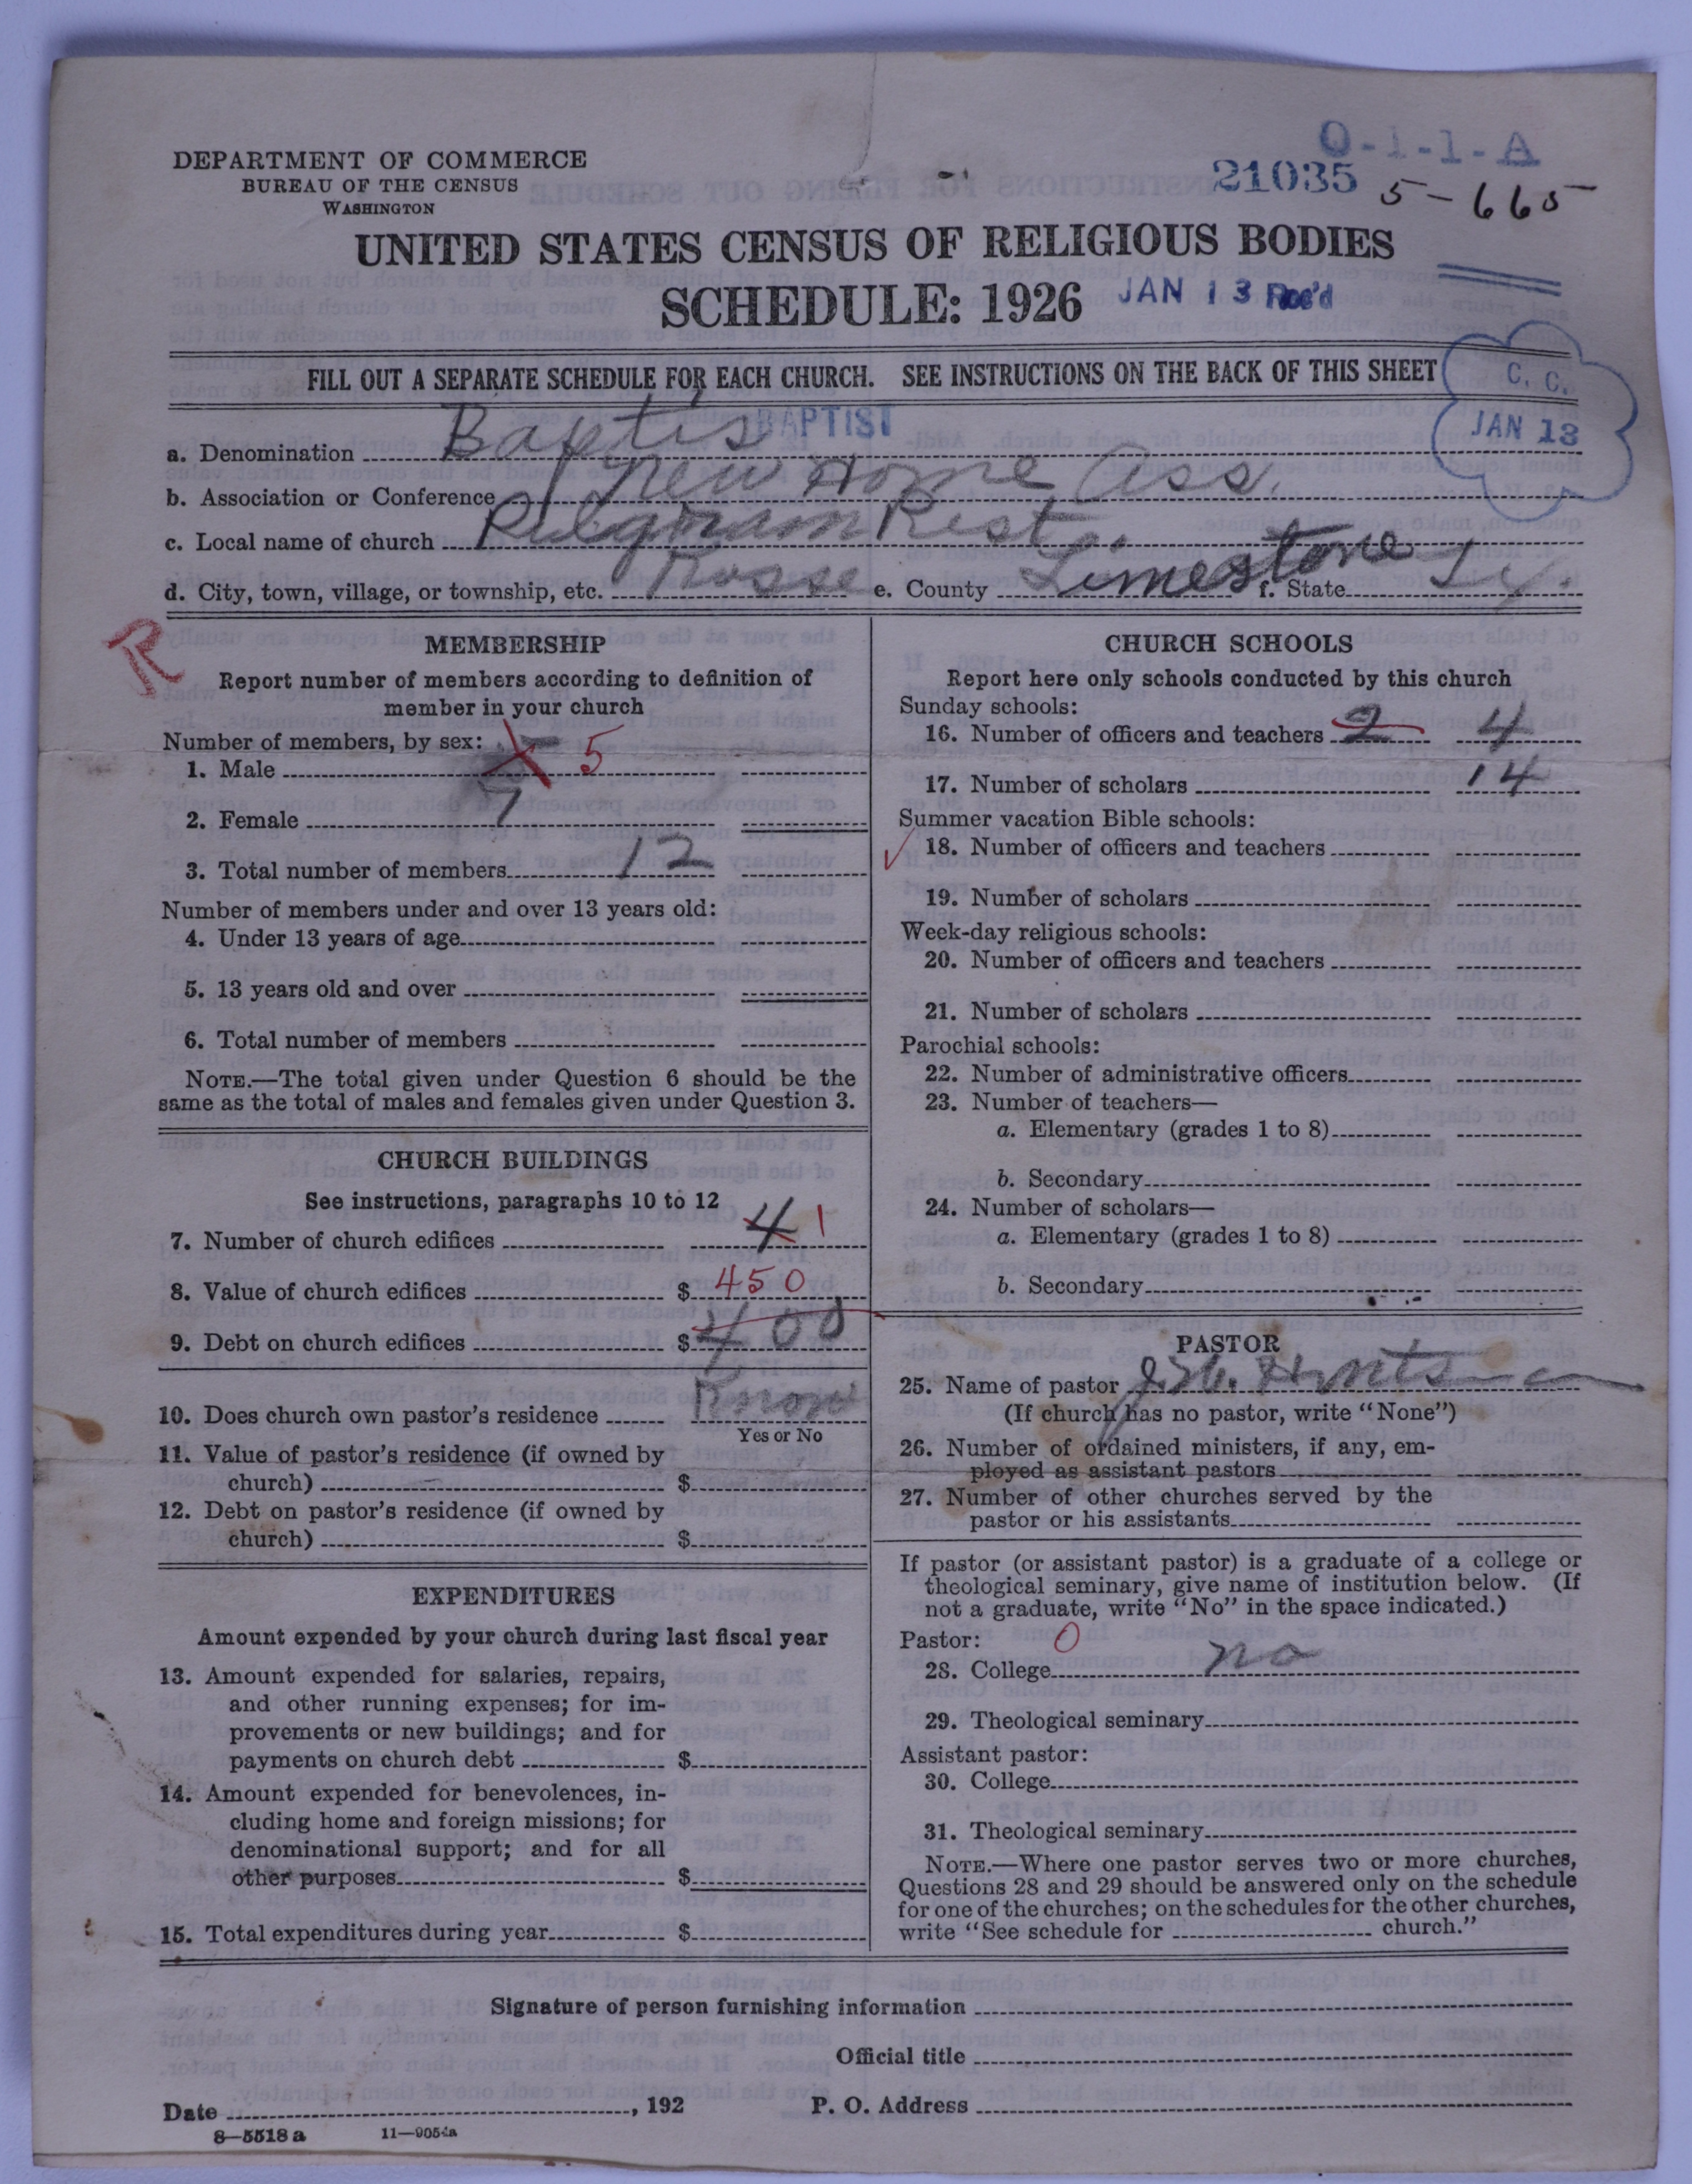 DEPARTMENT OF COMMERCE
BUREAU OF THE CENSUS
WASHINGTON
O-1-1-A
21035
5-665
UNITED STATES CENSUS OF RELIGIOUS BODIES
SCHEDULE: 1926
JAN 13 Rec'd
FILL OUT A SEPARATE SCHEDULE FOR EACH CHURCH. SEE INSTRUCTIONS ON THE BACK OF THIS SHEET
C. C.
JAN 13
a. Denomination Baptis BAPTIST
b. Association or Conference New Home Ass.
c. Local name of church Rest
d. City, town, village, or township, etc. Kosse e. County Limestone f. State
R
MEMBERSHIP
Report number of members according to definition of
member in your church
Number of members, by sex:
1. Male 5
2. Female 7
3. Total number of members 12
Number of members under and over 13 years old:
4. Under 13 years of age
5. 13 years old and over
6. Total number of members
NOTE.—The total given under Question 6 should be the
same as the total of males and females given under Question 3.
CHURCH BUILDINGS
See instructions, paragraphs 10 to 12
7. Number of church edifices 4 1
8. Value of church edifices $ 450
9. Debt on church edifices $ 400
10. Does church own pastor's residence Know
Yes or No
11. Value of pastor's residence (if owned by
church) $
12. Debt on pastor's residence (if owned by
church) $
EXPENDITURES
Amount expended by your church during last fiscal year
13. Amount expended for salaries, repairs,
and other running expenses; for im-
provements or new buildings; and for
payments on church debt $
14. Amount expended for benevolences, in-
cluding home and foreign missions; for
denominational support; and for all
other purposes $
15. Total expenditures during year $
CHURCH SCHOOLS
Report here only schools conducted by this church
Sunday schools:
16. Number of officers and teachers 2 4
17. Number of scholars 14
Summer vacation Bible schools:
18. Number of officers and teachers
19. Number of scholars
Week-day religious schools:
20. Number of officers and teachers
21. Number of scholars
Parochial schools:
22. Number of administrative officers
23. Number of teachers—
a. Elementary (grades 1 to 8)
b. Secondary
24. Number of scholars—
a. Elementary (grades 1 to 8)
b. Secondary
PASTOR
25. Name of pastor
(If church has no pastor, write "None")
26. Number of ordained ministers, if any, em-
ployed as assistant pastors
27. Number of other churches served by the
pastor or his assistants
If pastor (or assistant pastor) is a graduate of a college or
theological seminary, give name of institution below. (If
not a graduate, write "No" in the space indicated.)
Pastor: 0
28. College no
29. Theological seminary
Assistant pastor:
30. College
31. Theological seminary
NOTE.—Where one pastor serves two or more churches,
Questions 28 and 29 should be answered only on the schedule
for one of the churches; on the schedules for the other churches,
write "See schedule for church."
Signature of person furnishing information
Official title
Date , 192 P. O. Address
8—5518 a 11—9054a